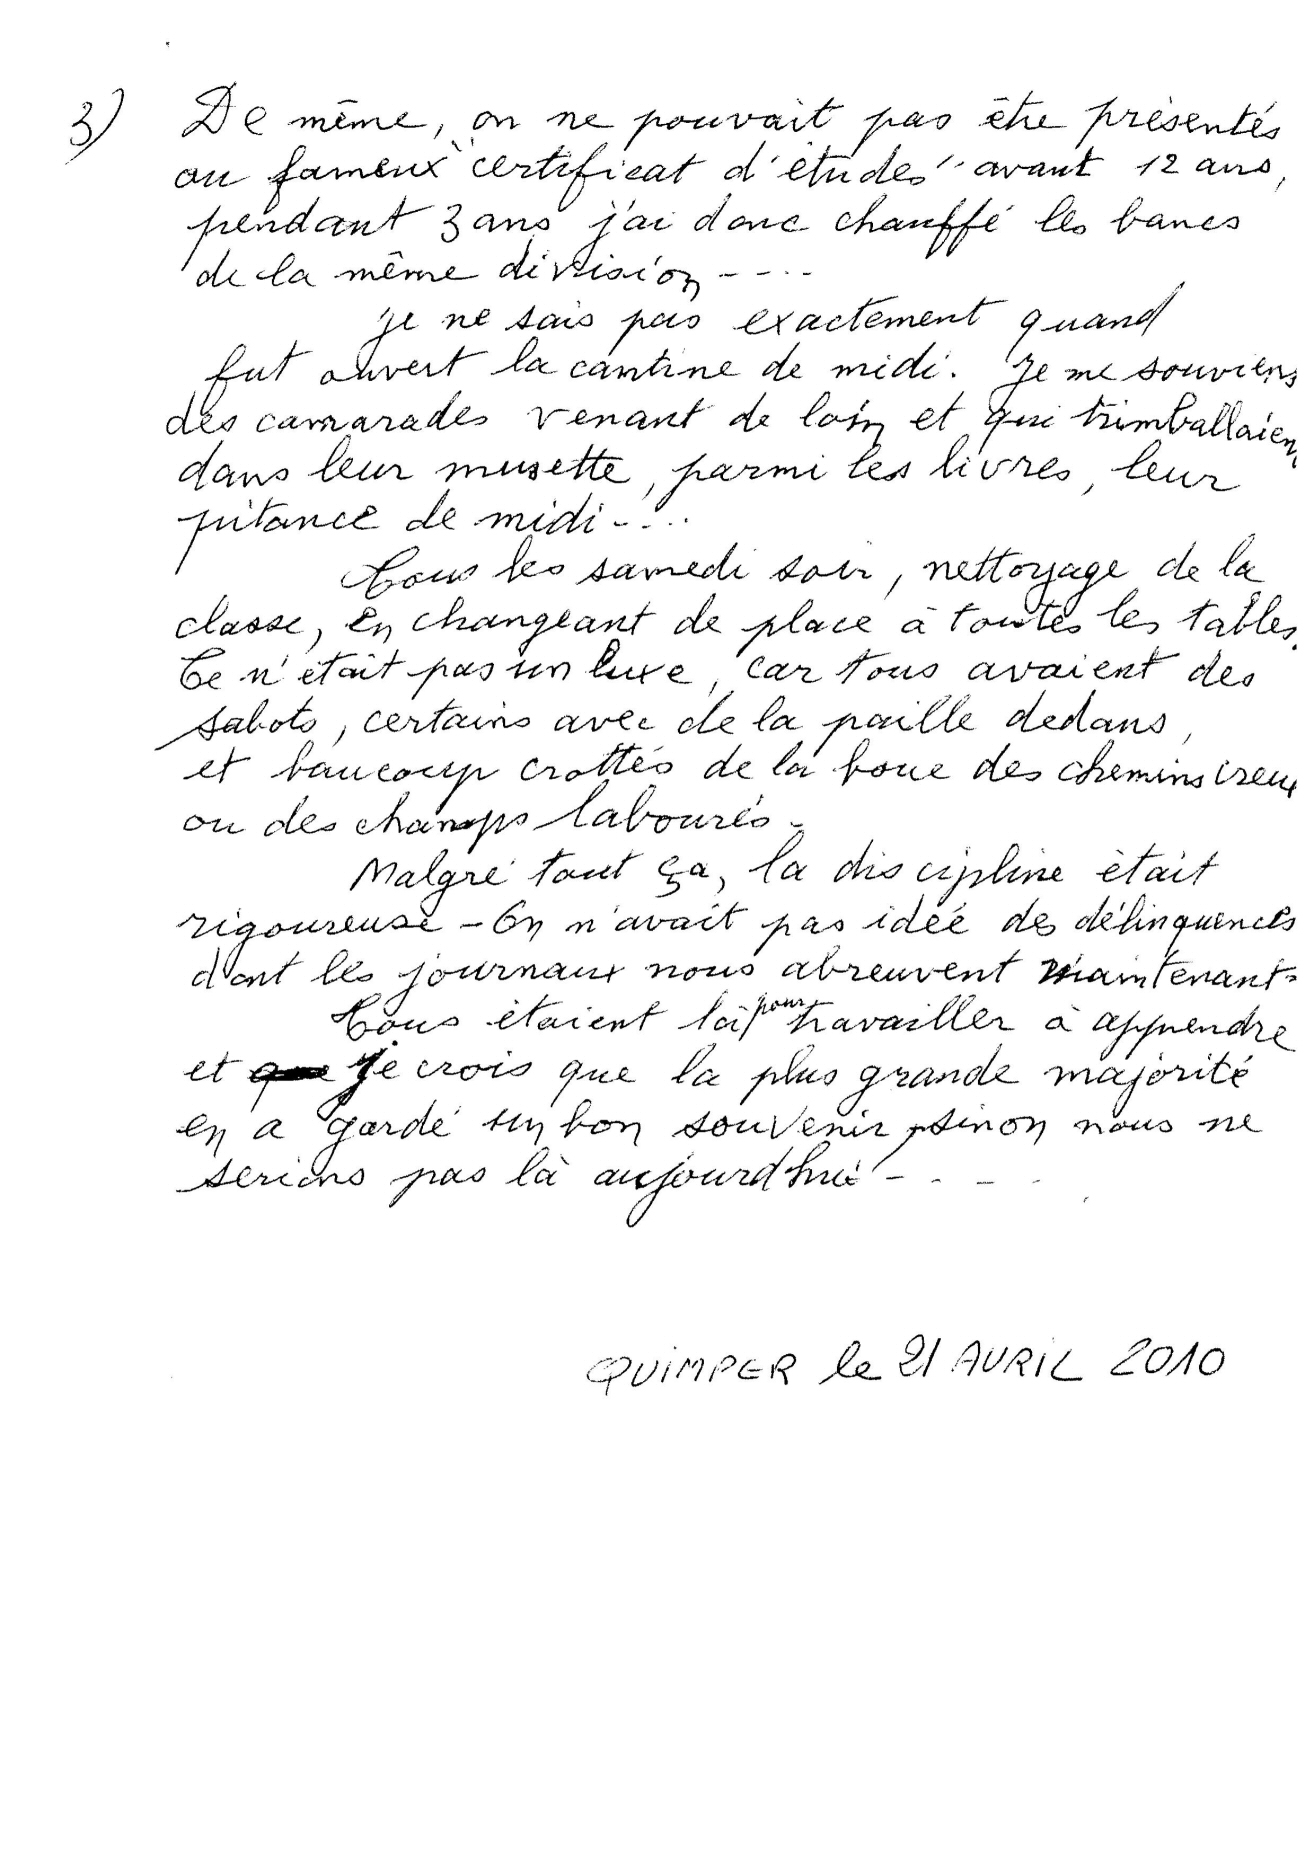 3) De même, on ne pouvait pas être présentés
au fameux "certificat d'études" avant 12 ans,
pendant 3 ans j'ai donc chauffé les bancs
de la même division ----
je ne sais pas exactement quand
fut ouvert la cantine de midi. Je me souviens
des camarades venant de loin et qui trimballaien
dans leur musette, parmi les livres, leur
pitance de midi ....
Tous les samedi soir, nettoyage de la
classe, en changeant de place à toutes les tables.
Ce n'était pas un luxe, car tous avaient des
sabots, certains avec de la paille dedans,
et baucoup crottés de la boue des chemins creux
ou des champs labourés -
Malgré tout ça, la discipline était
rigoureuse - On n'avait pas idée des délinquences
dont les journaux nous abreuvent maintenant -
Tous étaient là pour travailler à apprendre
et je crois que la plus grande majorité
en a gardé un bon souvenir, sinon nous ne
serions pas là aujourd'hui - - - -
QUIMPER le 21 AVRIL 2010